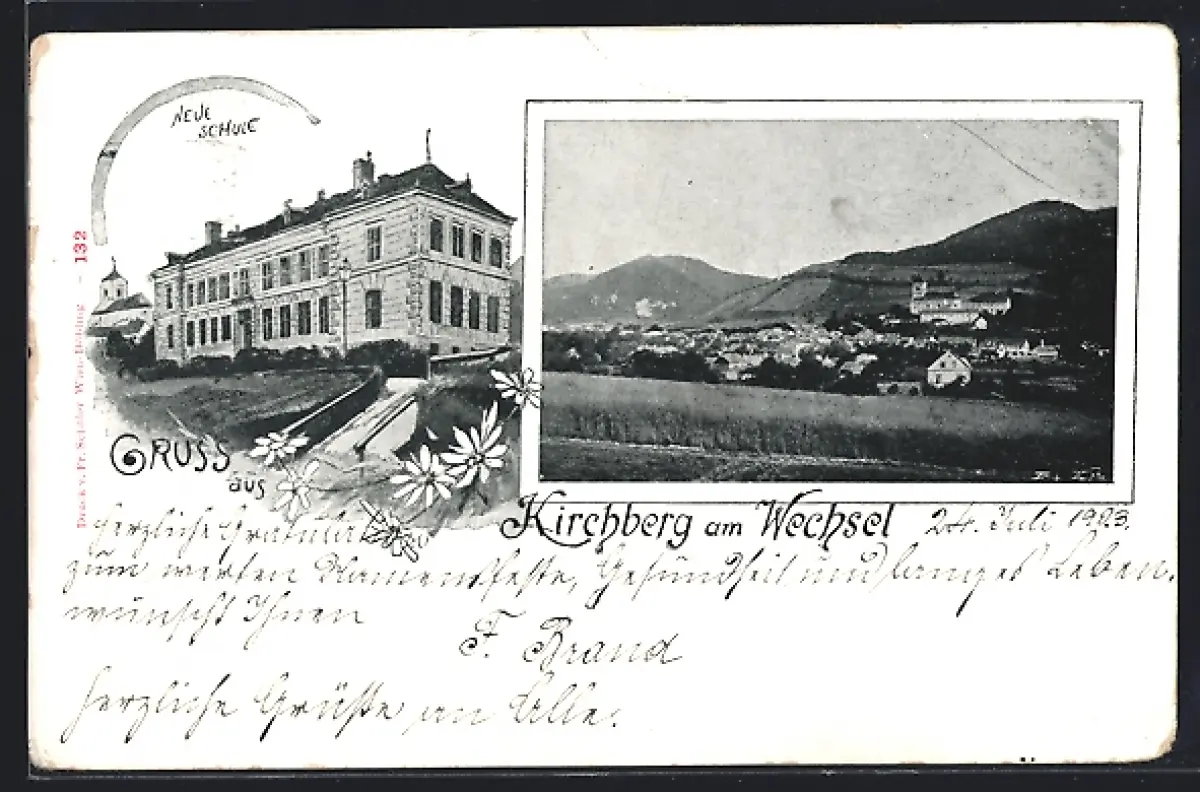 NEUE
SCHULE
132
Druck v. Fr. Schöler Wien-Döbling
GRUSS
aus
Kirchberg am Wechsel
24. Juli 1903.
Herzliche Gratula
zum werten Namensfeste, Gesundheit und langes Leben,
wünscht Ihnen
F. Brand
Herzliche Grüße an Alle.